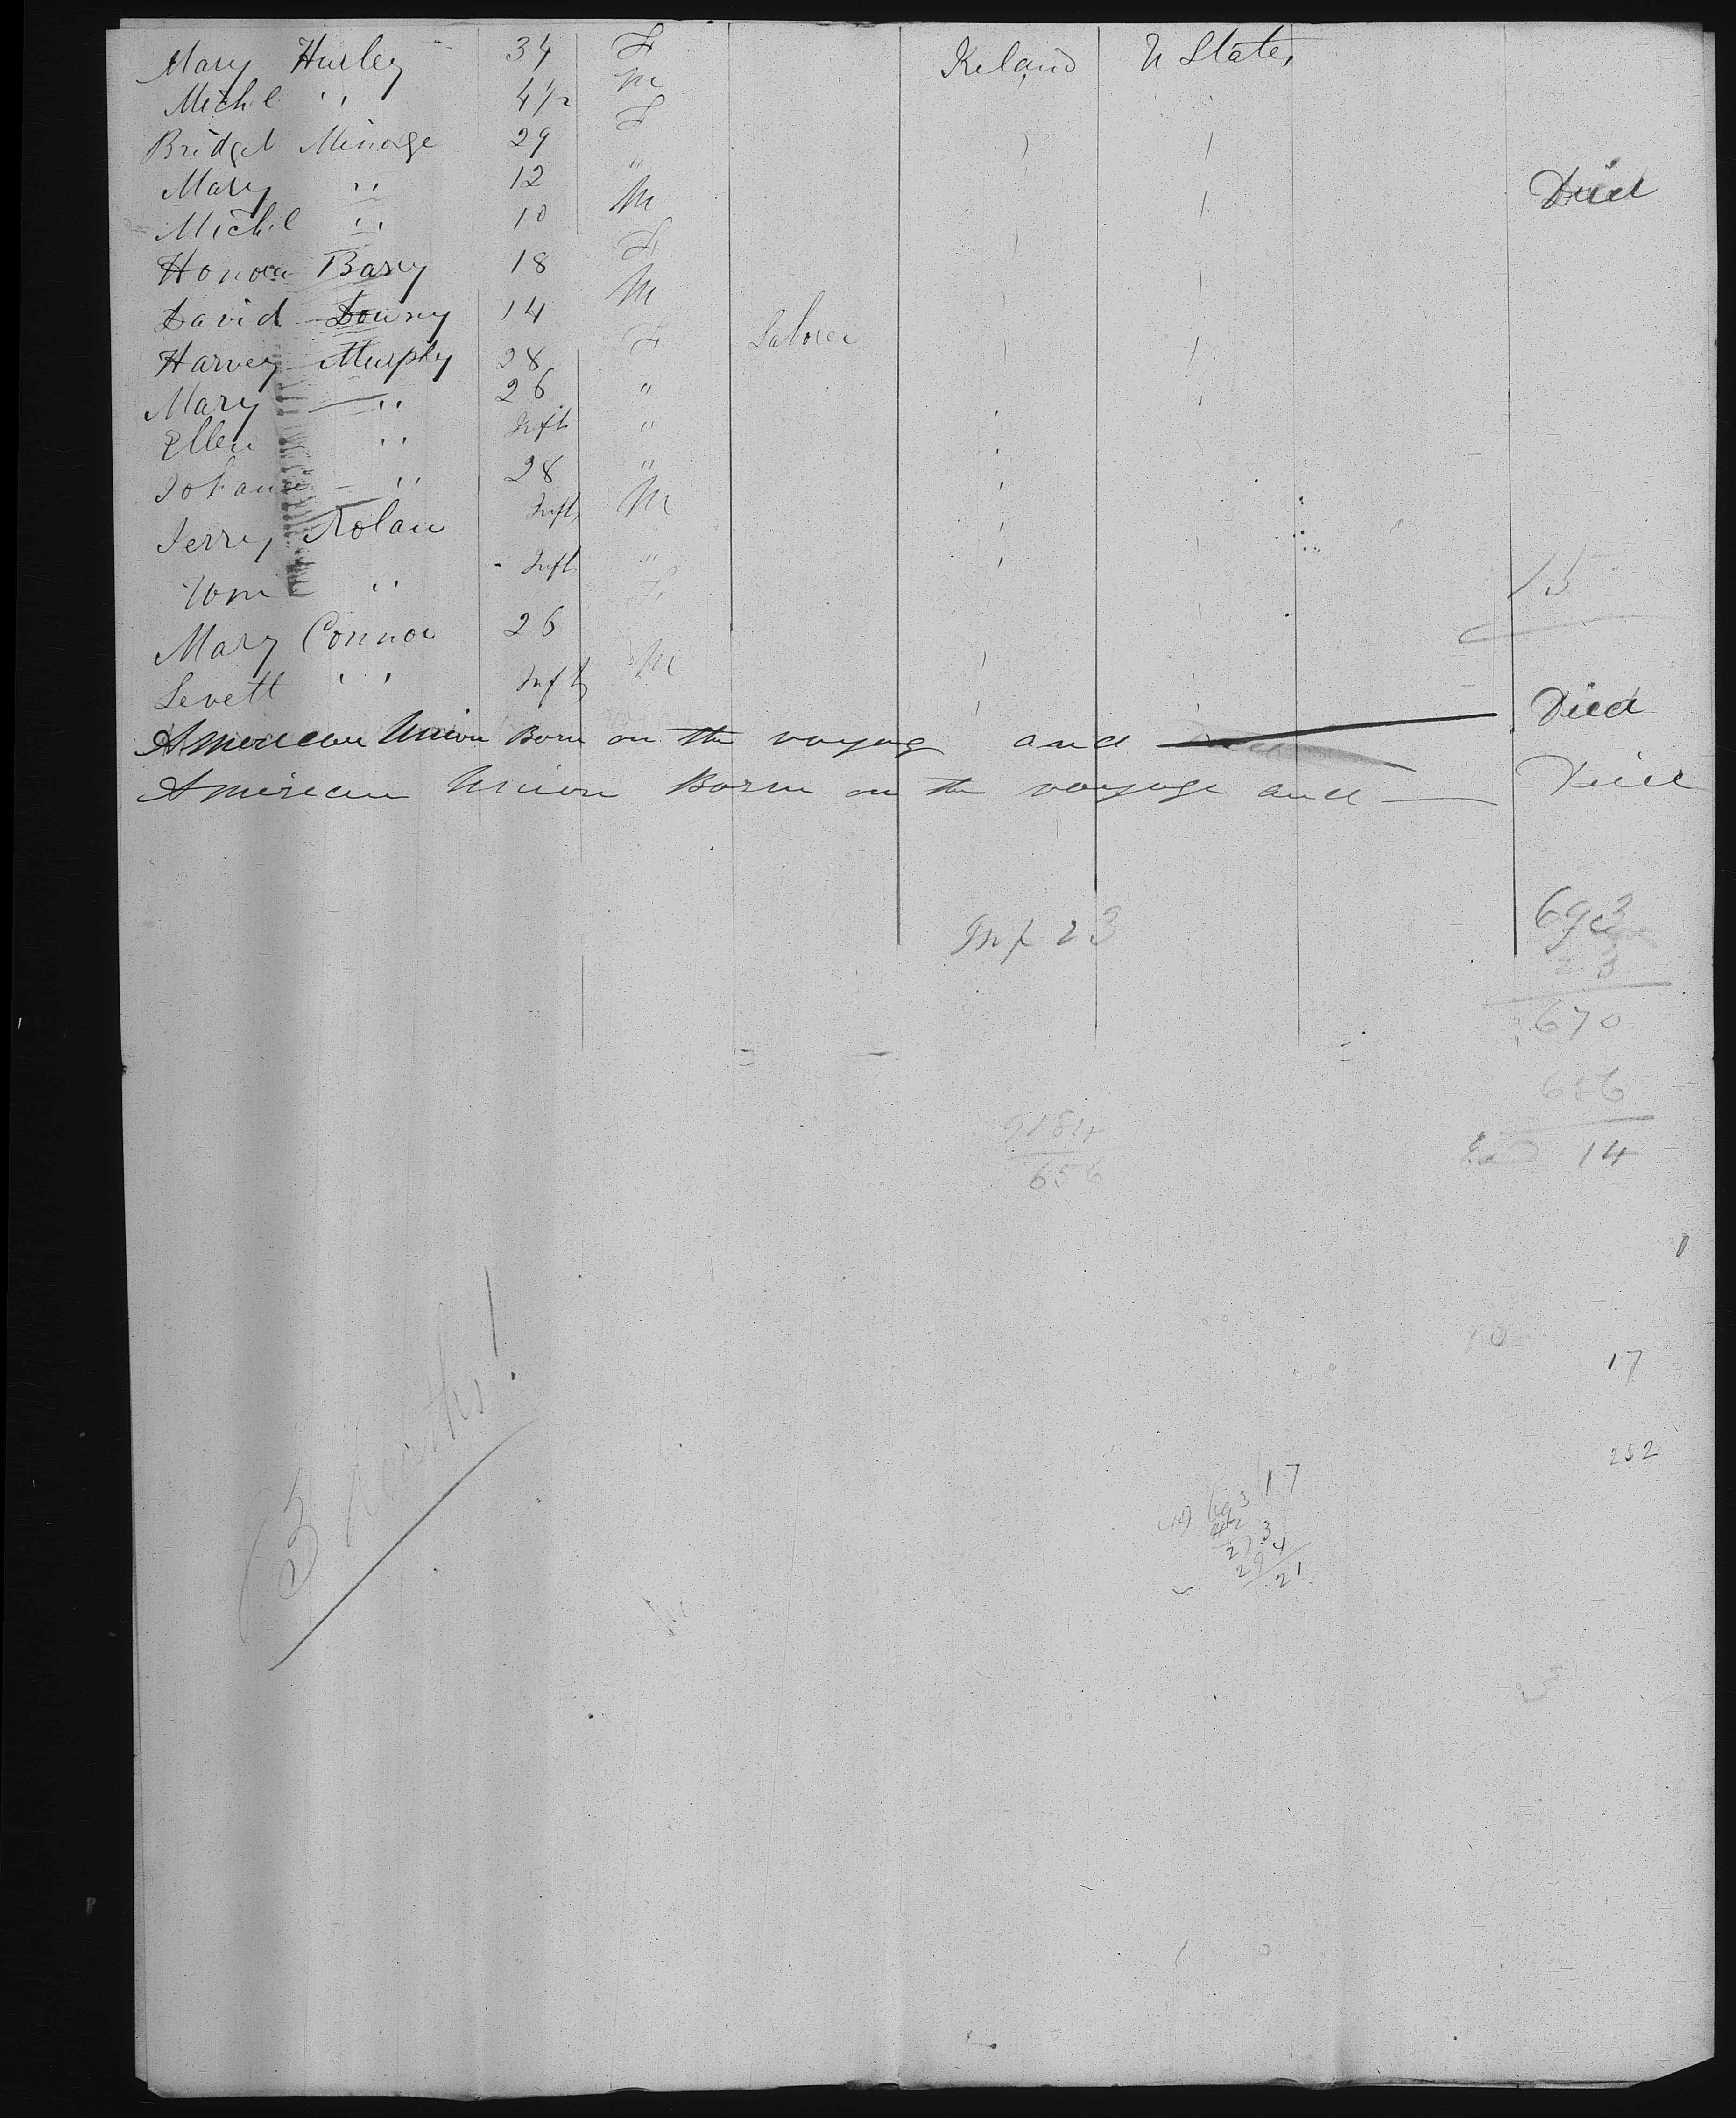 Mary Hurley 34 F Ireland U States
Michl " 4 1/2 M
Bridget Minoge 29 F
Mary " 12 " Died
Michl " 10 M
Honora Barry 18 F
David Downy 14 M
Harvey Murphy 28 F Laborer
Mary " 26 "
Ellen " Inft "
Johana " 28 "
Jerry Nolan Inft M
Tom " Inft "
15
Mary Connor 26 F
Levett " Inft M
American Union Born on the voyage and Died
American Union Born on the voyage and Died
Inf 23
693
23
670
656
14
656
17
252
17